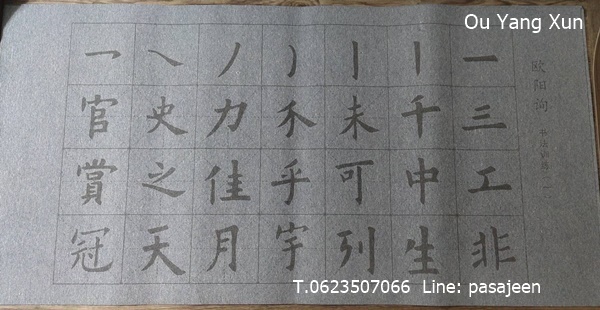 Ou Yang Xun
欧阳询
一三工非
丨千中生
丨未可列
丿乎宇
丿力佳月
㇏史之天
冖官賞冠
T.0623507066 Line: pasajeen